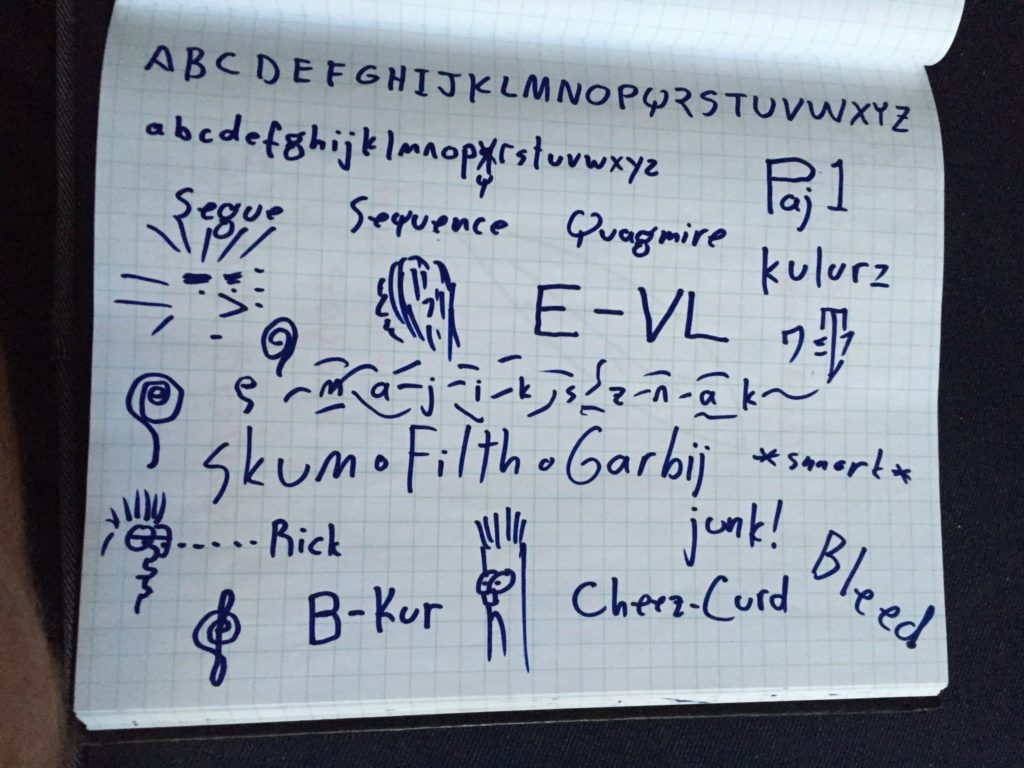 A B C D E F G H I J K L M N O P Q R S T U V W X Y Z
a b c d e f g h i j k l m n o p q r s t u v w x y z
Paj 1
Segue Sequence Quagmire
kulurz
E-VL
m-a-j-i-k, s z-n-a k~
Skum • Filth • Garbij *snnort*
Rick junk!
B-Kur Cheez-Curd Bleed